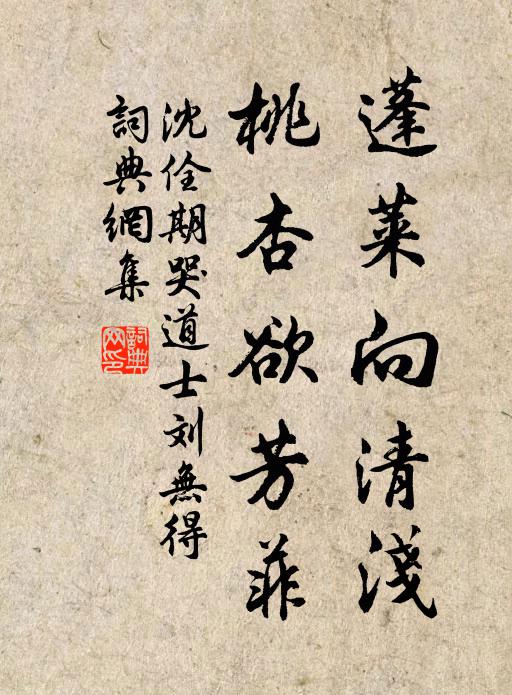 蓬萊向清淺
桃杏欲芳菲
沈佺期哭道士刘無得
詞典網集
詞典網印